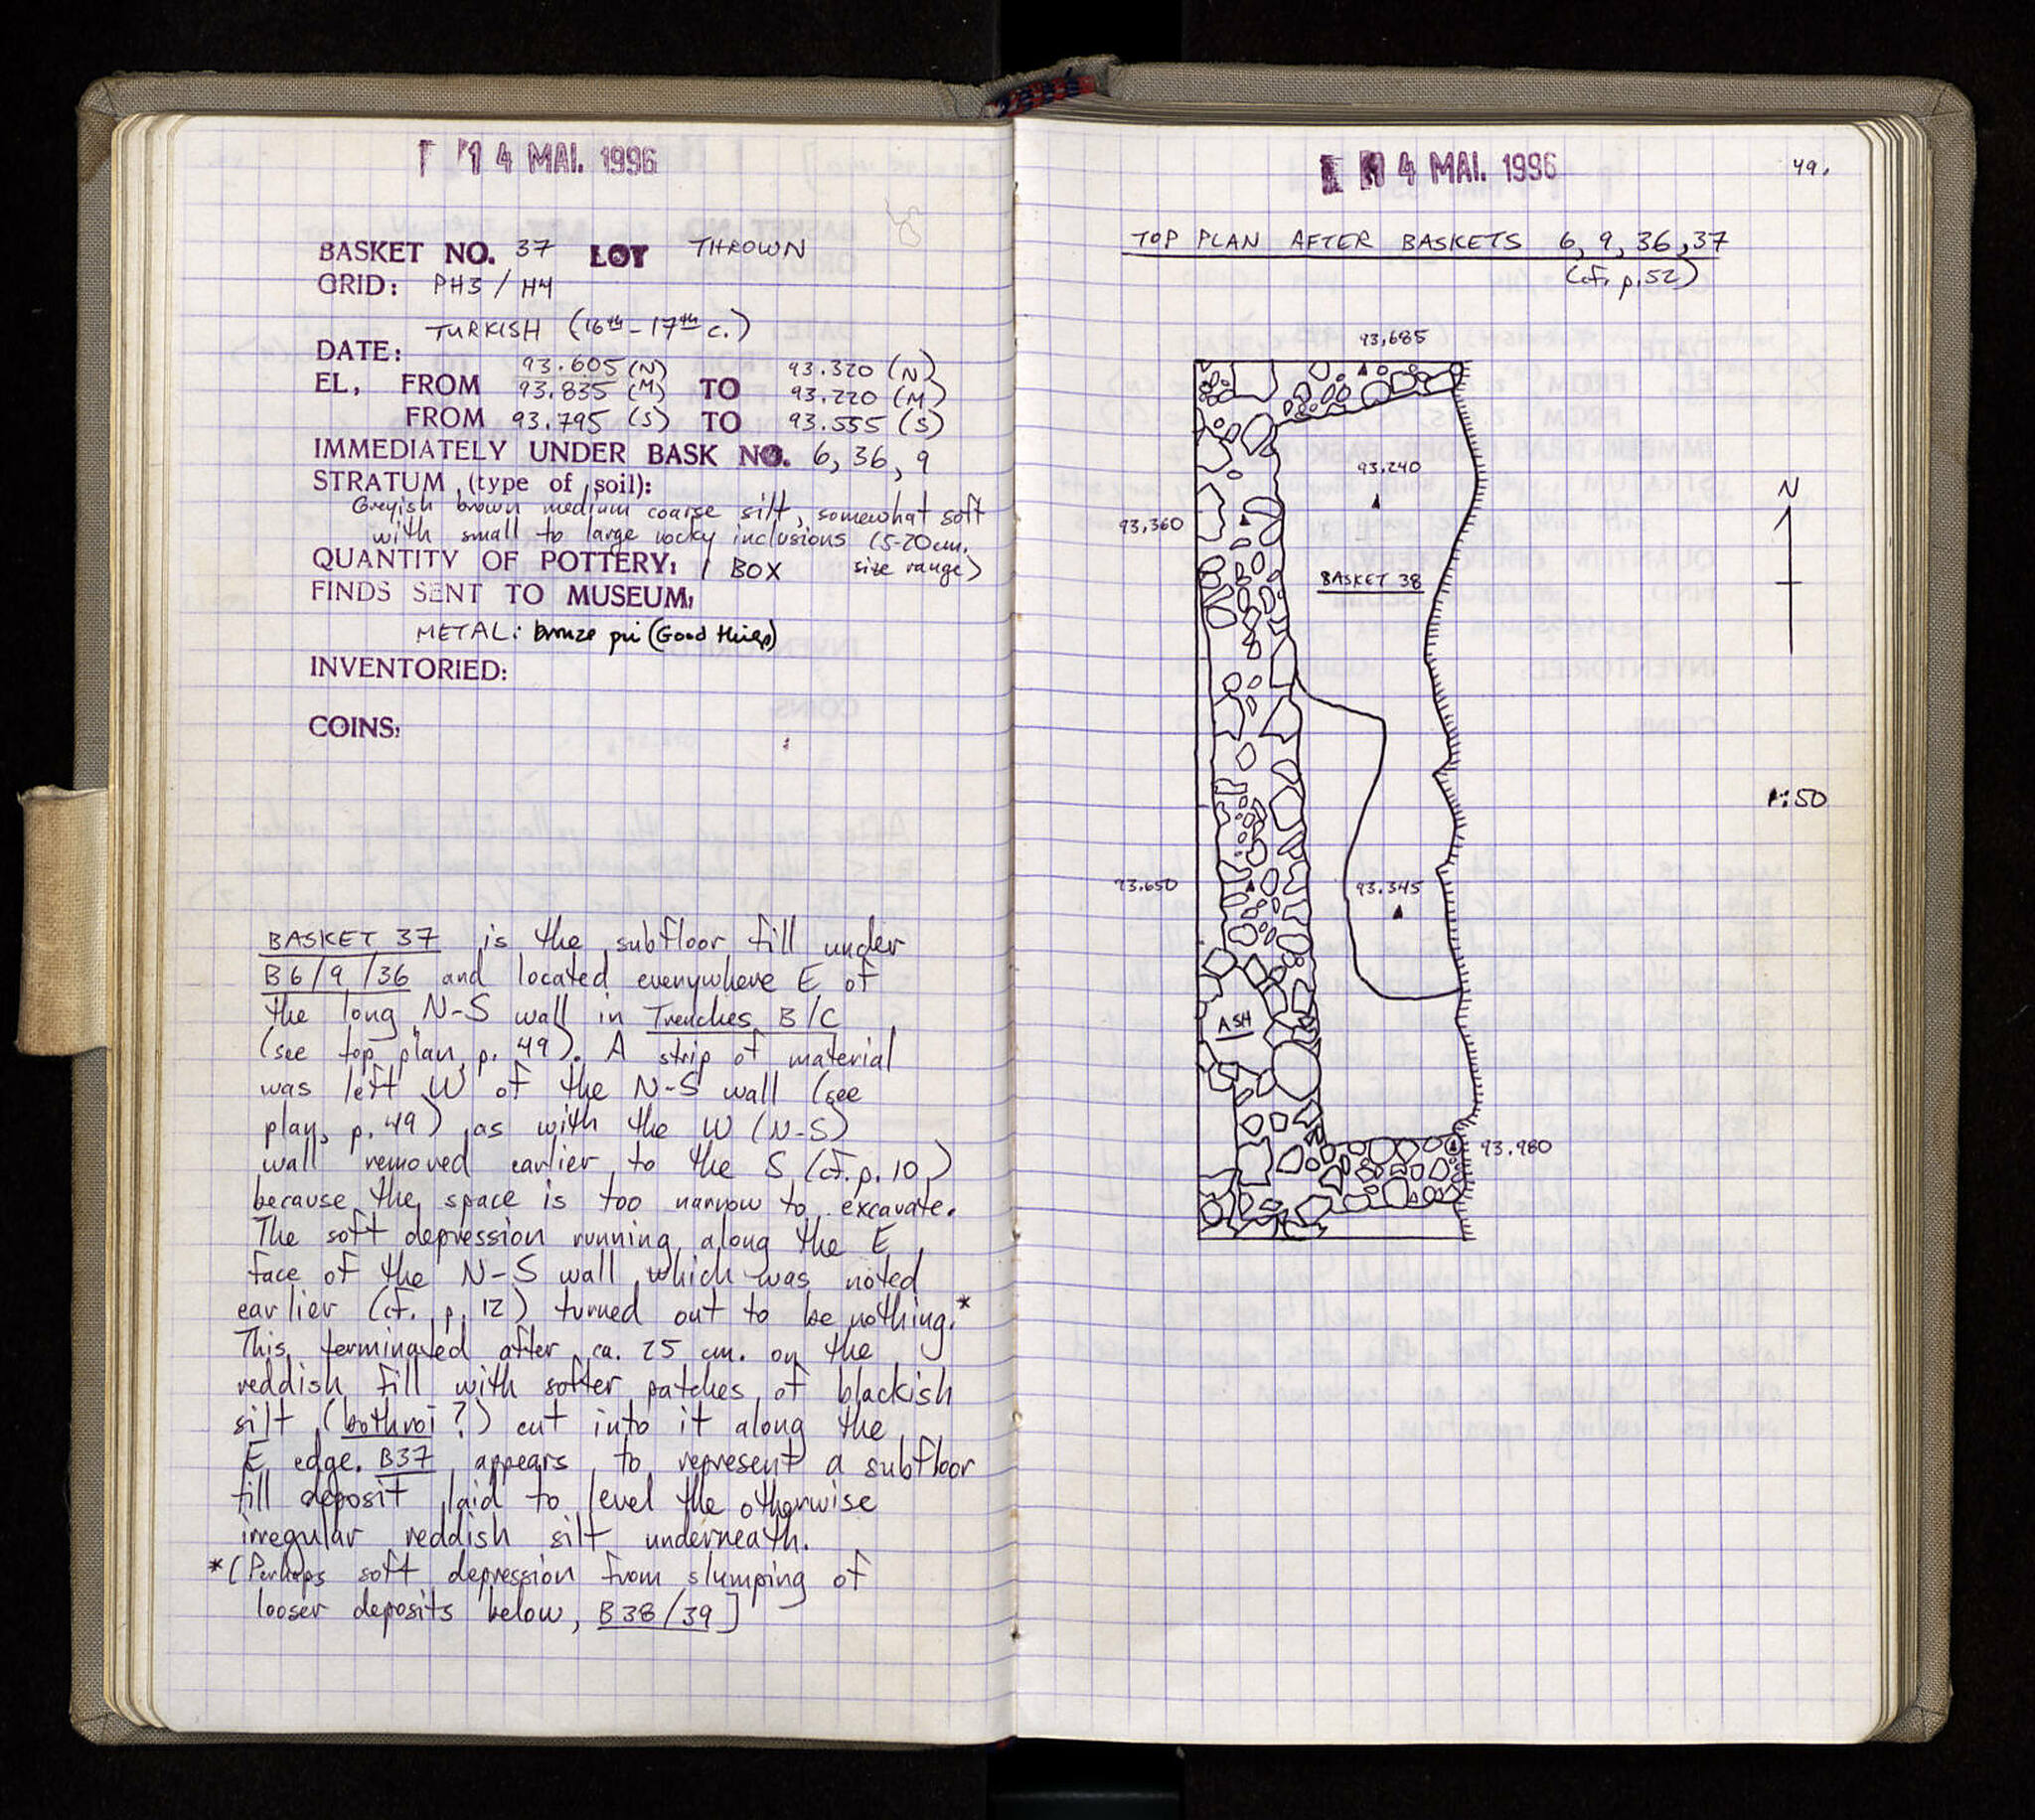 14 MAI. 1996
BASKET NO. 37 LOT THROWN
GRID: PH3 / H4
TURKISH (16th - 17th c.)
DATE:
93.605 (N) 93.320 (N)
EL, FROM 93.835 (M) TO 93.220 (M)
FROM 93.795 (S) TO 93.555 (S)
IMMEDIATELY UNDER BASK NO. 6, 36, 9
STRATUM (type of soil):
Greyish brown medium coarse silt, somewhat soft
with small to large rocky inclusions (5-20cm.
QUANTITY OF POTTERY: 1 BOX size range)
FINDS SENT TO MUSEUM:
METAL: bronze pin (Good things)
INVENTORIED:
COINS:
BASKET 37 is the subfloor fill under
B6/9/36 and located everywhere E of
the long N-S wall in Trenches B/C
(see top plan, p. 49). A strip of material
was left W of the N-S wall (see
plan, p. 49) as with the W (N-S)
wall removed earlier to the S (cf. p. 10)
because the space is too narrow to excavate.
The soft depression running along the E
face of the N-S wall which was noted
earlier (cf. p. 12) turned out to be nothing.*
This terminated after ca. 25 cm. on the
reddish fill with softer patches of blackish
silt (bothroi?) cut into it along the
E edge. B37 appears to represent a subfloor
fill deposit laid to level the otherwise
irregular reddish silt underneath.
*(Perhaps soft depression from slumping of
looser deposits below, B38/39]
4 MAI. 1996
49.
TOP PLAN AFTER BASKETS 6, 9, 36, 37
(cf. p. 52)
93.685
93.240
N
93.360
BASKET 38
1:50
93.650
93.345
ASH
93.980